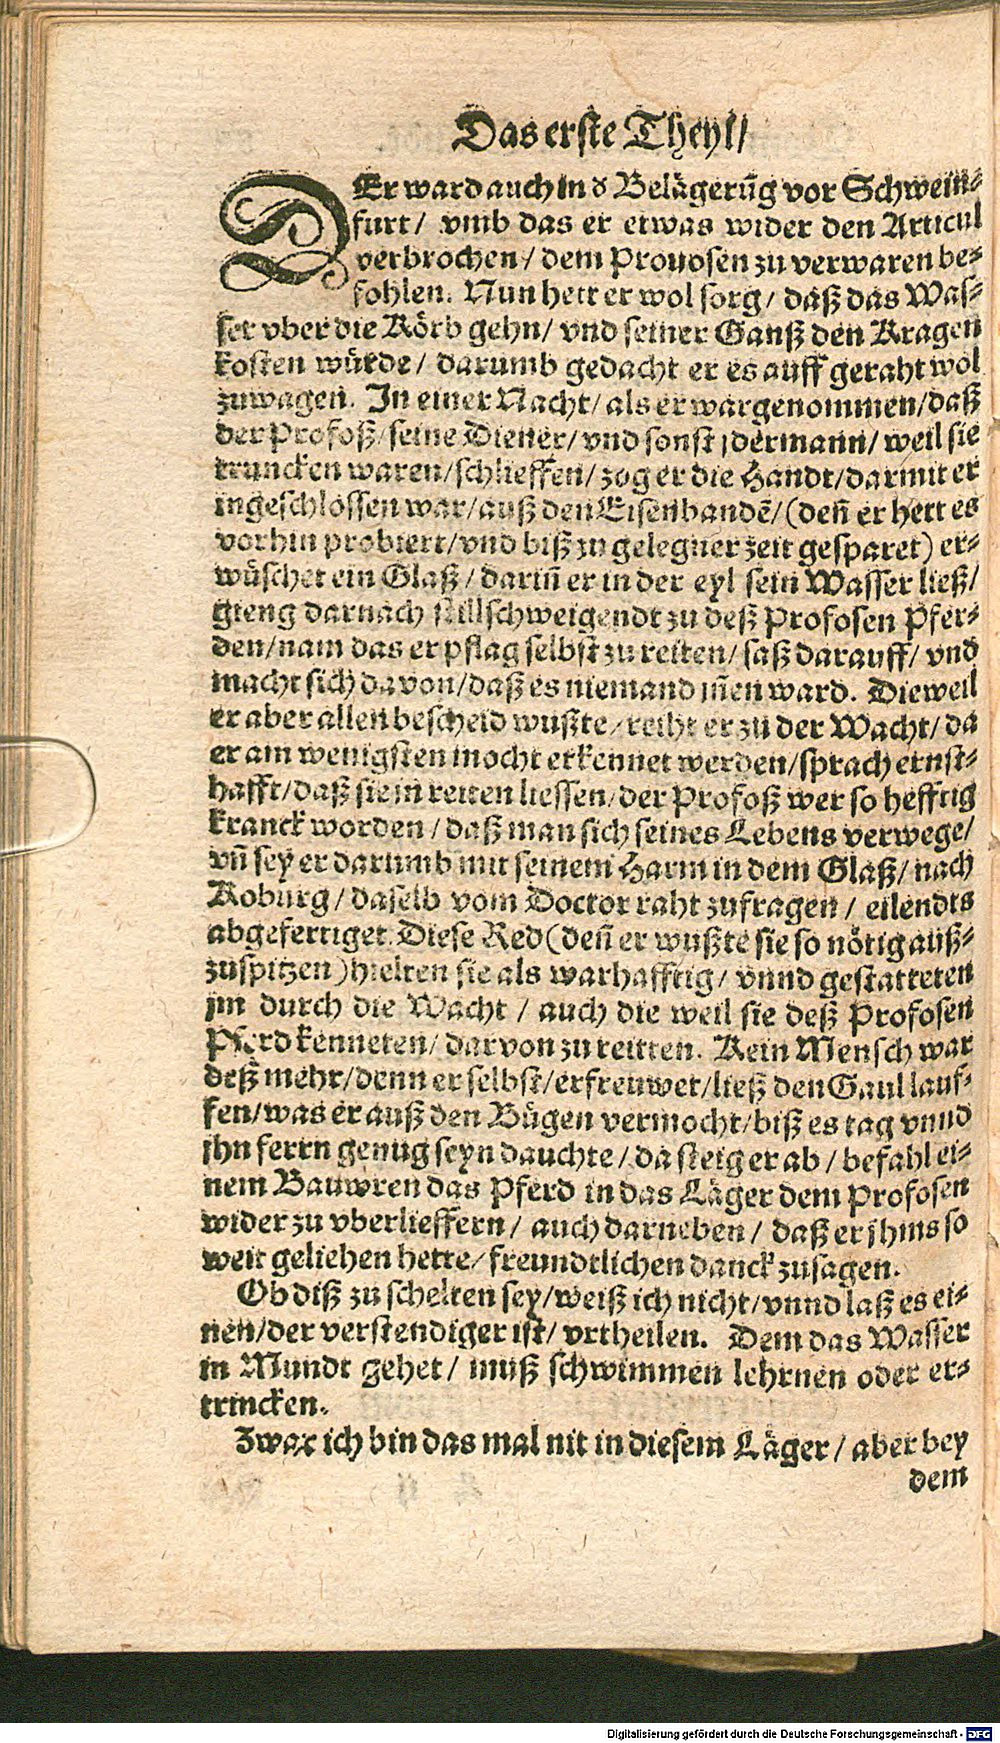 Das erste Theyl/
DEr ward auch in d᷑ Belägerūg vor Schwein-
furt/ vmb das er etwas wider den Articul
verbrochen/ dem Prouosen zu verwaren be-
fohlen. Nun hett er wol sorg/ daß das Was-
ser vber die Körb gehn/ vnd seiner Ganß den Kragen
kosten würde/ darumb gedacht er es auff geraht wol
zuwagen. In einer Nacht/ als er wargenommen/ daß
der Profoß/ seine Diener/ vnd sonst jdermann/ weil sie
truncken waren/ schlieffen/ zog er die Handt/ darmit er
ingeschlossen war/ auß den Eisenbandē/ (deñ er hett es
vorhin probiert/ vnd biß zu gelegner zeit gesparet) er-
wüschet ein Glaß/ dariñ er in der eyl sein Wasser ließ/
gieng darnach stillschweigendt zu deß Profosen Pfer-
den/ nam das er pflag selbst zu reiten/ saß darauff/ vnd
macht sich davon/ daß es niemand iñen ward. Dieweil
er aber allen bescheid wußte/ reiht er zu der Wacht/ da
er am wenigsten mocht erkennet werden/ sprach ernst-
hafft/ daß sie jn reiten liessen/ der Profoß wer so hefftig
kranck worden/ daß man sich seines Lebens verwege/
vñ sey er darumb mit seinem Harm in dem Glaß/ nach
Koburg/ daselb vom Doctor raht zufragen/ eilendts
abgefertiget. Diese Red (deñ er wußte sie so nötig auß-
zuspitzen) hielten sie als warhafftig/ vnnd gestatteten
jm durch die Wacht/ auch die weil sie deß Profosen
Pferd kenneten/ darvon zu reitten. Kein Mensch war
deß mehr/ denn er selbst/ erfreuwet/ ließ den Gaul lauf-
fen/ was er auß den Bügen vermocht/ biß es tag vnnd
jhn ferrn genug seyn dauchte/ da steig er ab/ befahl ei-
nem Bauwren das Pferd in das Läger dem Profosen
wider zu vberlieffern/ auch darneben/ daß er jhms so
weit geliehen hette/ freundtlichen danck zusagen.
Ob diß zu schelten sey/ weiß ich nicht/ vnnd laß es ei-
nen/ der verstendiger ist/ vrtheilen. Dem das Wasser
in Mundt gehet/ muß schwimmen lehrnen oder er-
trincken.
Zwar ich bin das mal nit in diesem Läger/ aber bey
dem
Digitalisierung gefördert durch die Deutsche Forschungsgemeinschaft - DFG